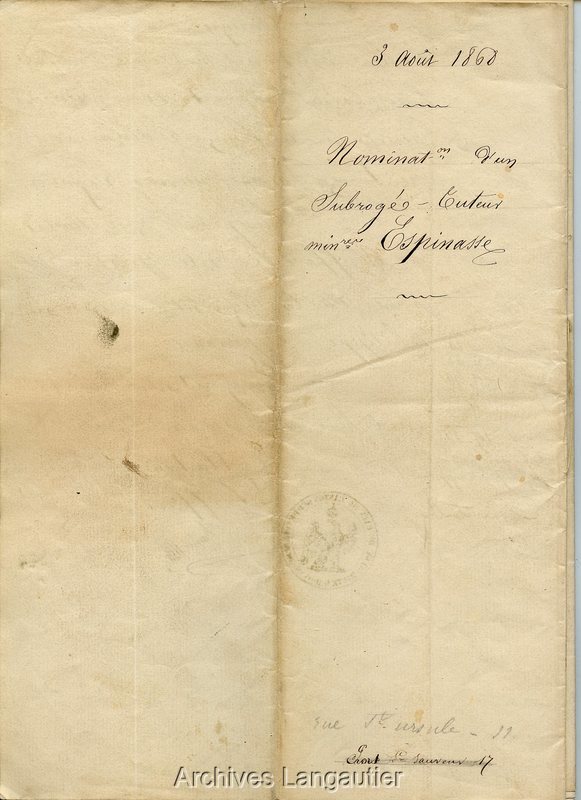 3 Août 1868
Nominat.on d'un
Subrogé-Tuteur
min.re Espinasse
rue Ste ursule - 11
Port St Sauveur 17
Archives Langautier